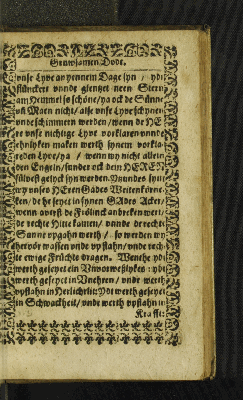 Gruwsamen Dode.
vnse Lyve an yennem Dage syn / ydt
flünckert vnnde glentzet neen Stern
am Hemmel so schöne / ya ock de Sünne
vñ Maen nicht / alse vnse Lyve schynen
vnde schimmern werden / wenn de HE
re vnse nichtige Lyve vorklaren vnnde
ehnlyken maken werth synem vorkla-
reden Lyve / ya / wenn wy nicht allein
den Engeln / sunder ock dem HEREN
sülvest gelyck syn werden. Nu
wy vnses HEren Gades Weitenkörne-
ken / de he seyet in synen GAdes Acker /
wenn averst de Frölinck anbreken wert /
de rechte Hitte kamen / vnnde de rechte
Sünne vpgahn werth / so werden wy
ehervör wassen vnde vpstahn / vnde rech-
te ewige Früchte dragen. Wente ydt
werth geseyet ein Unvorweßlyken: ydt
werth geseyet in Unehren / vnde werth
vpstahn in Herlicheit: Ydt werth geseyet
in Swackheit / vnde werth vpstahn in
Krafft: